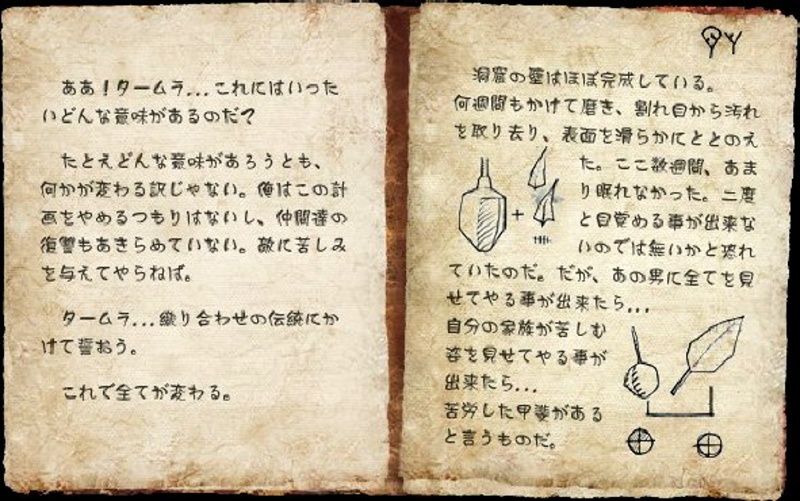 ああ！タームラ...これにはいった
いどんな意味があるのだ？
たとえどんな意味があろうとも、
何かが変わる訳じゃない。俺はこの計
画をやめるつもりはないし、仲間達の
復讐もあきらめていない。敵に苦しみ
を与えてやらねば。
タームラ...織り合わせの伝統にか
けて誓おう。
これで全てが変わる。
洞窟の壁はほぼ完成している。
何週間もかけて磨き、割れ目から汚れ
を取り去り、表面を滑らかにととのえ
た。ここ数週間、あま
り眠れなかった。二度
と目覚める事が出来な
いのでは無いかと恐れ
ていたのだ。だが、あの男に全てを見
せてやる事が出来たら...
自分の家族が苦しむ
姿を見せてやる事が
出来たら...
苦労した甲斐がある
と言うものだ。